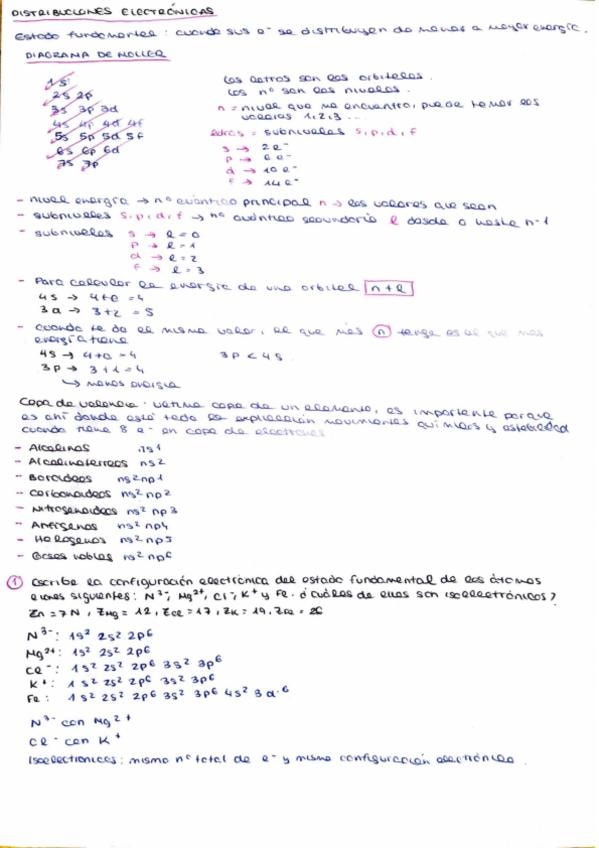 DISTRIBUCIONES ELECTRÓNICAS
Estado fundamental: cuando sus e⁻ se distribuyen de menor a mayor energía.
DIAGRAMA DE MOLLER
1s
2s 2p
3s 3p 3d
4s 4p 4d 4f
5s 5p 5d 5f
6s 6p 6d
7s 7p
Las letras son los orbitales.
Los nº son los niveles.
n = nivel que me encuentro, puede tener los
valores 1, 2, 3 ...
letras = subniveles s, p, d, f
s → 2e⁻
p → 6e⁻
d → 10e⁻
f → 14e⁻
- nivel energía → nº cuántico principal n → los valores que sean
- subniveles s, p, d, f → nº cuántico secundario l desde 0 hasta n-1
- subniveles s → l = 0
p → l = 1
d → l = 2
f → l = 3
- Para calcular la energía de un orbital n + l
4s → 4+0 = 4
3d → 3+2 = 5
- Cuando te da el mismo valor, el que más n tenga es el que más
energía tiene
4s → 4+0 = 4 3p < 4s
3p → 3+1 = 4
↳ menos energía
Capa de valencia: última capa de un elemento, es importante porque
es ahí donde está toda la explicación movimientos químicos y estabilidad
cuando tiene 8 e⁻ en capa de electrones
- Alcalinos ns1
- Alcalinoterreos ns2
- Boroideos ns2np1
- Carbonoideos ns2np2
- Nitrogenoideos ns2np3
- Anfígenos ns2np4
- Halógenos ns2np5
- Gases nobles ns2np6
1 Escribe la configuración electrónica del estado fundamental de los átomos
e iones siguientes: N³⁻, Mg²⁺, Cl⁻, K⁺ y Fe. ¿Cuáles de ellos son isoelectrónicos?
Zn = 7N, ZMg = 12, ZCl = 17, ZK = 19, ZFe = 26
N³⁻: 1s² 2s² 2p⁶
Mg²⁺: 1s² 2s² 2p⁶
Cl⁻: 1s² 2s² 2p⁶ 3s² 3p⁶
K⁺: 1s² 2s² 2p⁶ 3s² 3p⁶
Fe: 1s² 2s² 2p⁶ 3s² 3p⁶ 4s² 3d⁶
N³⁻ con Mg²⁺
Cl⁻ con K⁺
Isoelectronicos: mismo nº total de e⁻ y misma configuración electrónica.